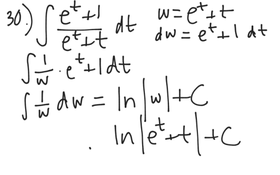 30.) ∫ (e^t+1)/(e^t+t) dt   w = e^t+t
dw = e^t+1 dt
∫ 1/w · e^t+1 dt
∫ 1/w dw = ln|w|+C
ln|e^t+t|+C